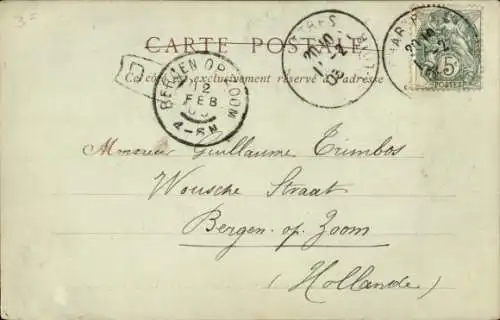 3=
CARTE POSTALE
Ce côté est exclusivement réservé à l'adresse
BERGEN OP ZOOM
12
FEB
4-5N
5c
POSTES
Monsieur Guillaume Trimbos
Wousche Straat
Bergen op Zoom
(Hollande)